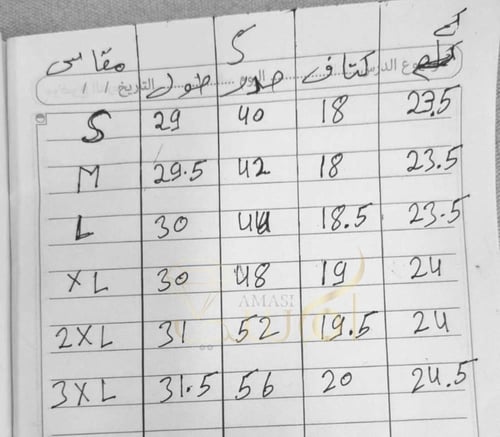 S كم
مقاس طول صدر كتاف
S 29 40 18 23.5
M 29.5 42 18 23.5
L 30 44 18.5 23.5
XL 30 48 19 24
AMASI
2XL 31 52 19.5 24
3XL 31.5 56 20 24.5